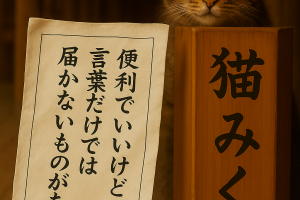 便利でいいけど
言葉だけでは
届かないものが
猫みく